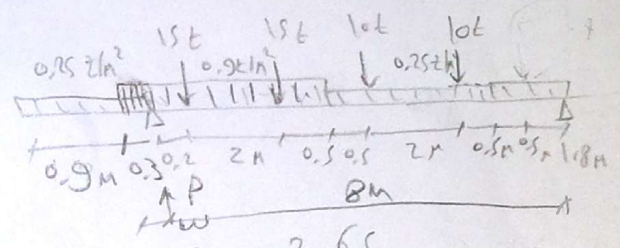 15t 15t 10t 10t
0,25 t/m² 0,9t/m² 0,25t/m
0.9m 0.3 0.2 2m 0.5 0.5 2m 0.5m 0.5m 1.8m
P 8m